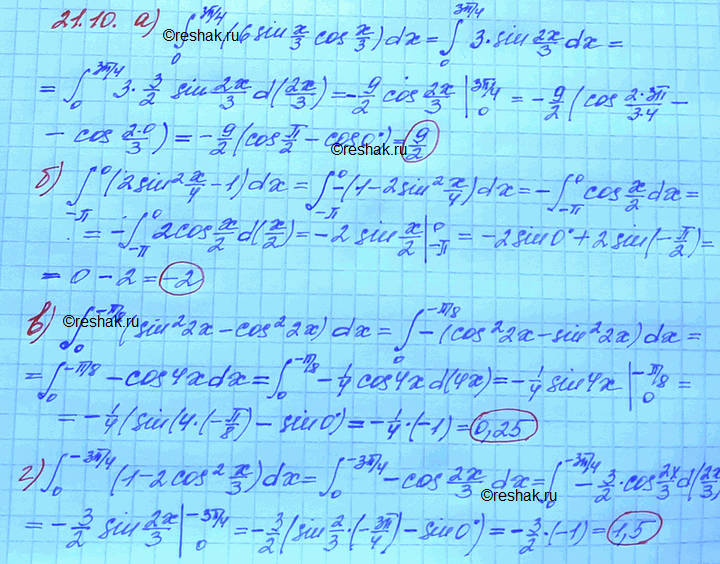 21.10. а) ∫₀^{3π/4} (6 sin x/3 cos x/3) dx = ∫₀^{3π/4} 3·sin 2x/3 dx =
= ∫₀^{3π/4} 3·3/2 sin 2x/3 d(2x/3) = -9/2 cos 2x/3 |₀^{3π/4} = -9/2 (cos 2·3π/3·4 -
- cos 2·0/3) = -9/2 (cos π/2 - cos 0°) = 9/2
б) ∫_{-π}^0 (2sin² x/4 - 1) dx = ∫_{-π}^0 -(1-2sin² x/4) dx = -∫_{-π}^0 cos x/2 dx =
= -∫_{-π}^0 2cos x/2 d(x/2) = -2 sin x/2 |_{-π}^0 = -2sin 0° + 2 sin(-π/2) =
= 0 - 2 = -2
в) ∫₀^{-π/8} (sin² 2x - cos² 2x) dx = ∫₀^{-π/8} -(cos² 2x - sin² 2x) dx =
= ∫₀^{-π/8} -cos 4x dx = ∫₀^{-π/8} -1/4 cos 4x d(4x) = -1/4 sin 4x |₀^{-π/8} =
= -1/4 (sin(4·(-π/8) - sin 0°) = -1/4·(-1) = 0,25
г) ∫₀^{-3π/4} (1-2cos² x/3) dx = ∫₀^{-3π/4} -cos 2x/3 dx = ∫₀^{-3π/4} -3/2·cos 2x/3 d(2x/3)
= -3/2 sin 2x/3 |₀^{-3π/4} = -3/2 (sin 2/3·(-3π/4) - sin 0°) = -3/2·(-1) = 1,5
©reshak.ru
©reshak.ru
©reshak.ru
©reshak.ru